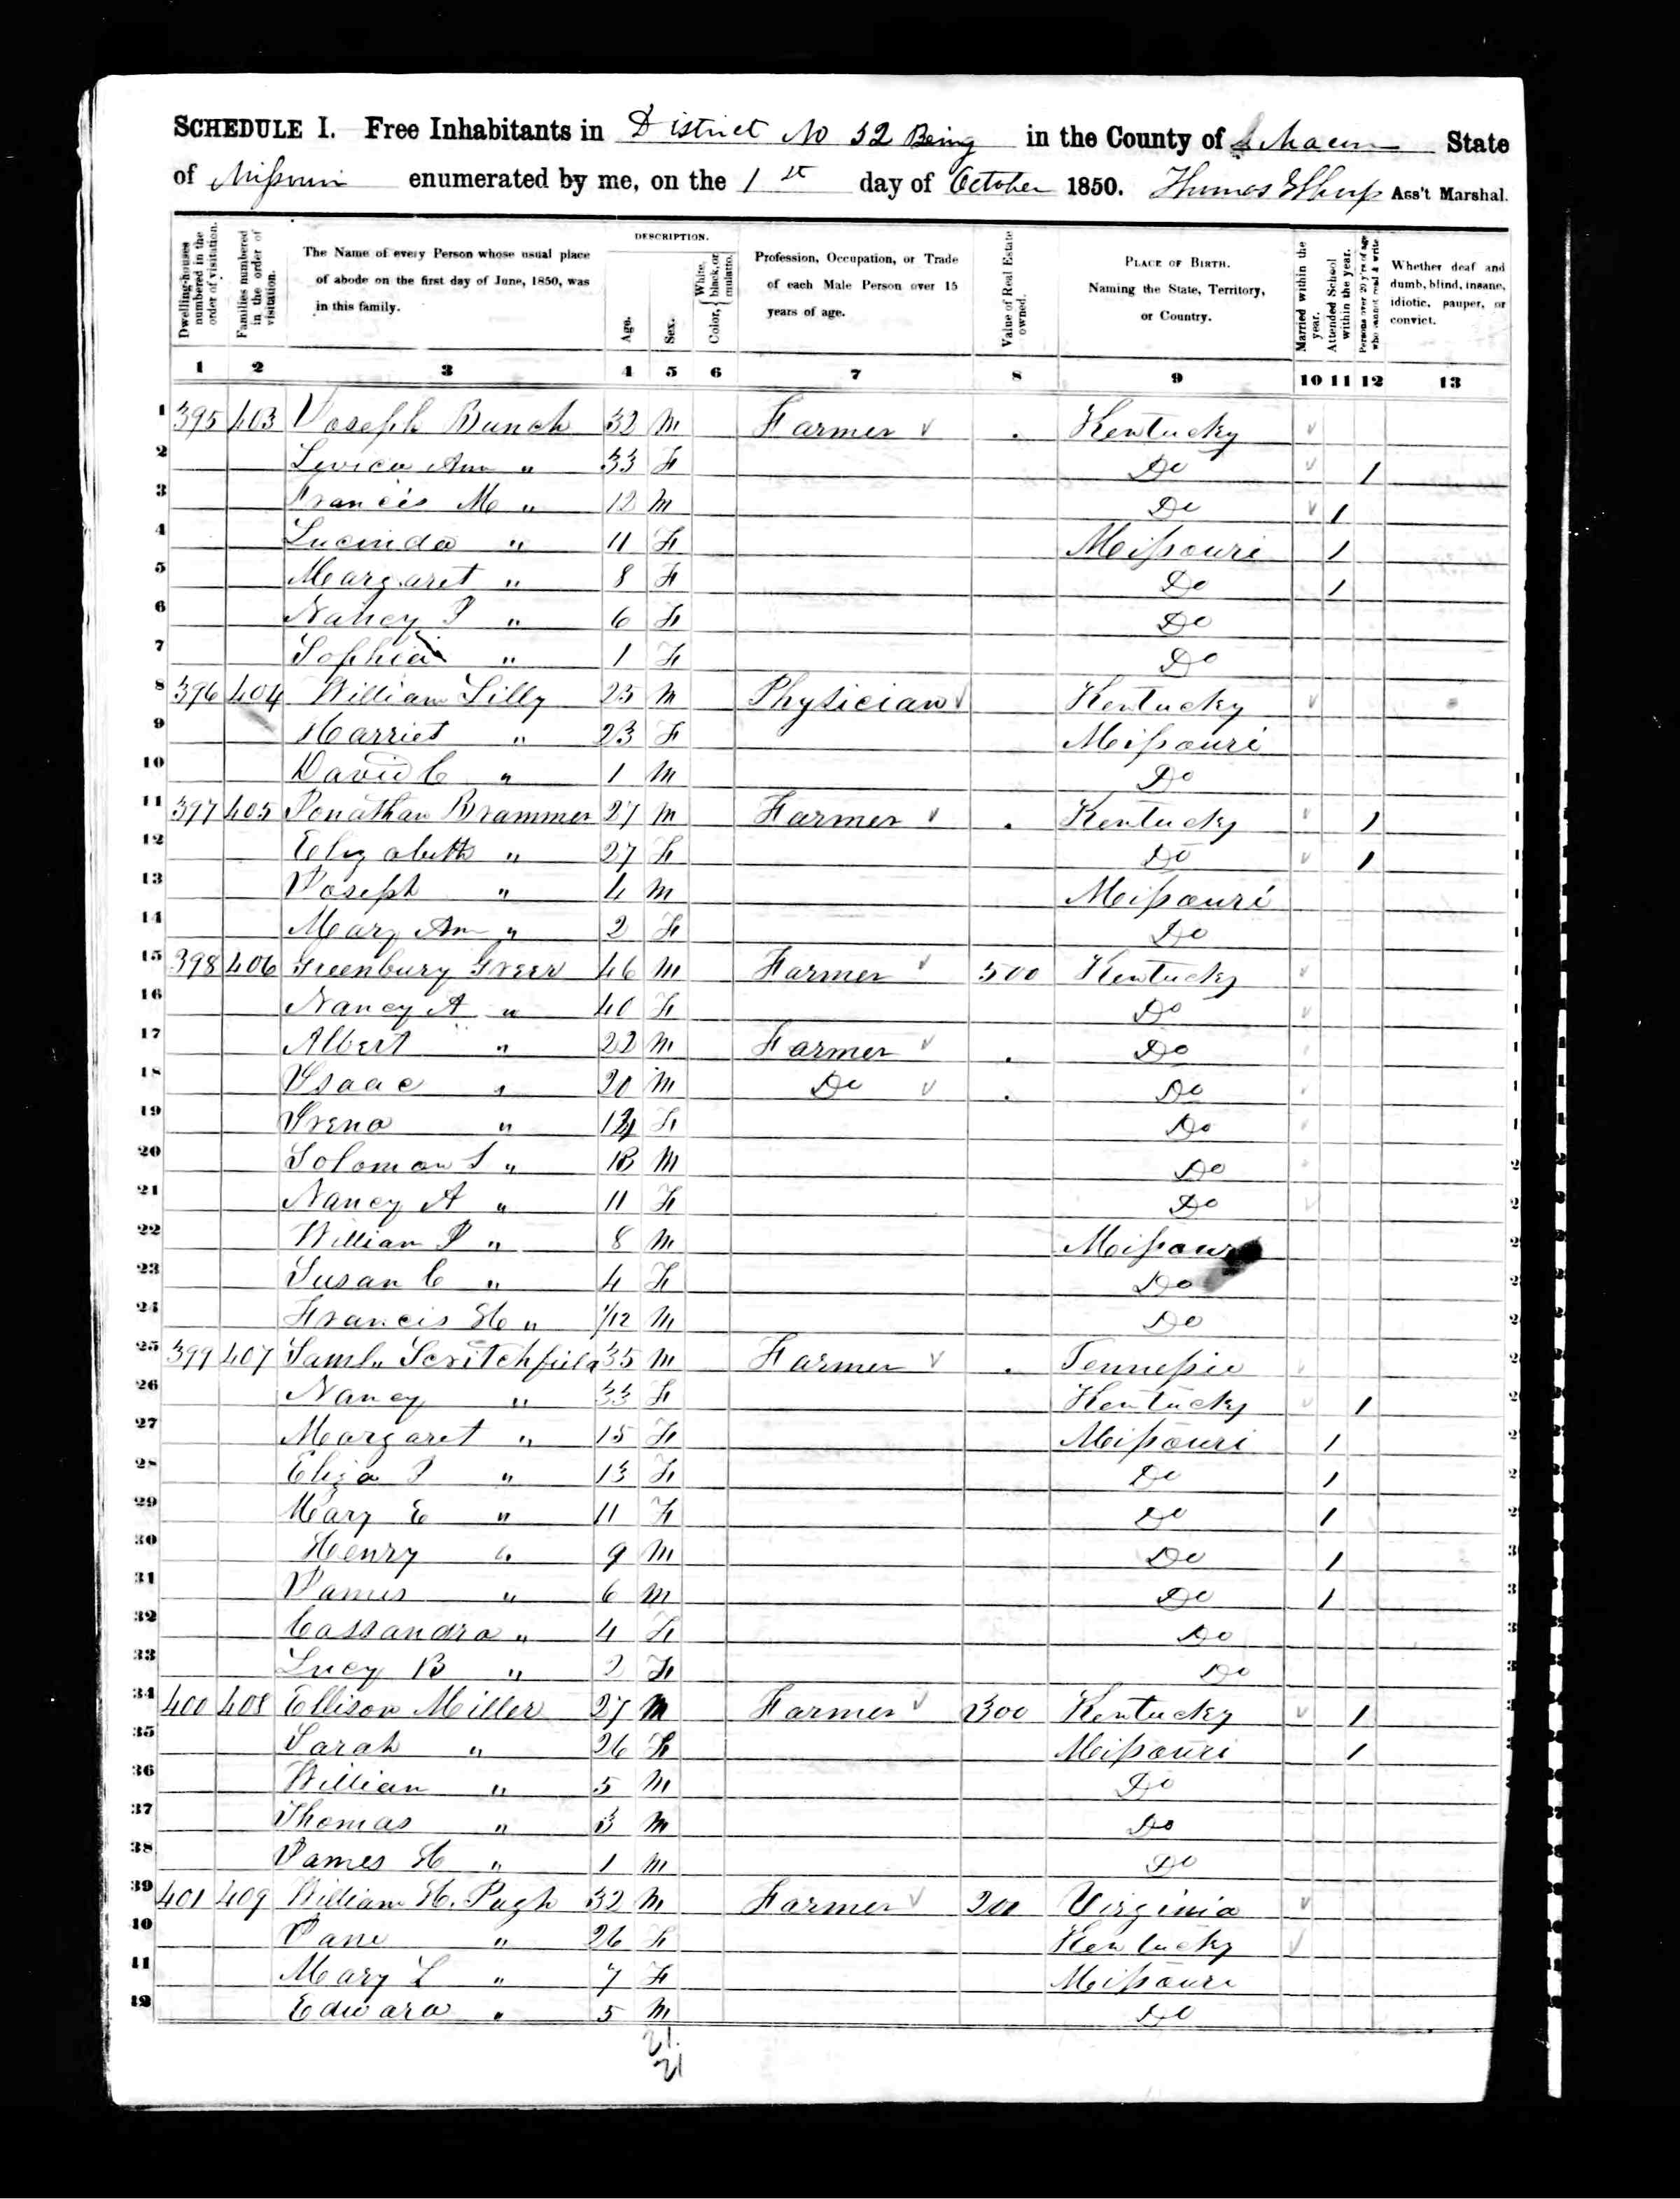 SCHEDULE I. Free Inhabitants in District No 52 Being in the County of Macon State
of Missouri enumerated by me, on the 1st day of October 1850. Thomas Sharp Ass't Marshal.
Dwelling-houses numbered in the order of visitation.
Families numbered in the order of visitation.
The Name of every Person whose usual place of abode on the first day of June, 1850, was in this family.
DESCRIPTION.
Age.
Sex.
Color, { White, black, or mulatto.
Profession, Occupation, or Trade of each Male Person over 15 years of age.
Value of Real Estate owned.
PLACE OF BIRTH. Naming the State, Territory, or Country.
Married within the year.
Attended School within the year.
Persons over 20 y'rs of age who cannot read & write.
Whether deaf and dumb, blind, insane, idiotic, pauper, or convict.
1 2 3 4 5 6 7 8 9 10 11 12 13
1 395 403 Joseph Bunch 32 M Farmer Kentucky
2 Levica Ann " 33 F Do 1
3 Francis M " 12 M Do 1
4 Lucinda " 11 F Missouri 1
5 Margaret " 8 F Do 1
6 Nancy J " 6 F Do
7 Sophia " 1 F Do
8 396 404 William Lilly 25 M Physician Kentucky
9 Harriet " 23 F Missouri
10 David C " 1 M Do
11 397 405 Jonathan Brammer 27 M Farmer Kentucky 1
12 Elizabeth " 27 F Do 1
13 Joseph " 4 M Missouri
14 Mary Ann " 2 F Do
15 398 406 Greenbury Greer 46 M Farmer 500 Kentucky
16 Nancy A " 40 F Do
17 Albert " 22 M Farmer Do
18 Isaac " 20 M Do Do
19 Irena " F Do
20 Solomon S " 13 M Do
21 Nancy A " 11 F Do
22 William J " 8 M Missouri
23 Susan C " 4 F Do
24 Francis H " 1/12 M Do
25 399 407 Saml. Scritchfield 35 M Farmer Tennessee
26 Nancy " 33 F Kentucky 1
27 Margaret " 15 F Missouri 1
28 Eliza J " 13 F Do 1
29 Mary E " 11 F Do 1
30 Henry " 9 M Do 1
31 James " 6 M Do 1
32 Cassandra " 4 F Do
33 Lucy B " 2 F Do
34 400 408 Ellison Miller 27 M Farmer 300 Kentucky 1
35 Sarah " 26 F Missouri 1
36 William " 5 M Do
37 Thomas " 3 M Do
38 James H " 1 M Do
39 401 409 William H. Pugh 32 M Farmer 200 Virginia
40 Jane " 26 F Kentucky
41 Mary L " 7 F Missouri
42 Edward " 5 M Do
21.
21